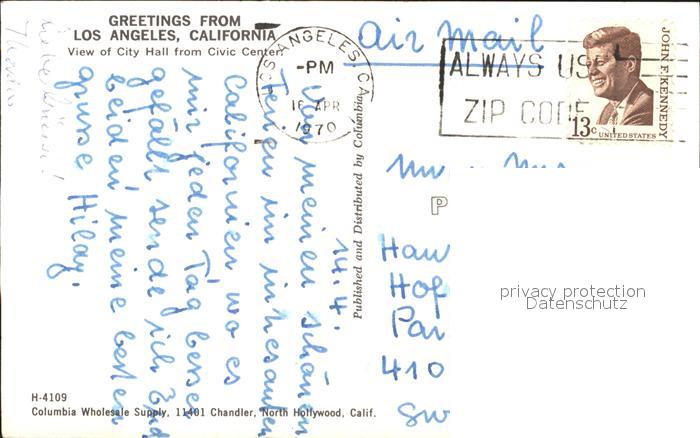 GREETINGS FROM
LOS ANGELES, CALIFORNIA
View of City Hall from Civic Center
Air Mail
LOS ANGELES, CA
-PM
16 APR
1970
ALWAYS US
ZIP CODE
JOHN F. KENNEDY
13c UNITED STATES
14.4.
Von meinen schönen
Ferien im
Californien wo es
mir jeden Tag besser
gefällt sende ich Euch
beiden meine besten
grüsse Hilay.
Published and Distributed by Columbia
P
Haw
Hof
Par
410
SW
privacy protection
Datenschutz
H-4109
Columbia Wholesale Supply, 11401 Chandler, North Hollywood, Calif.